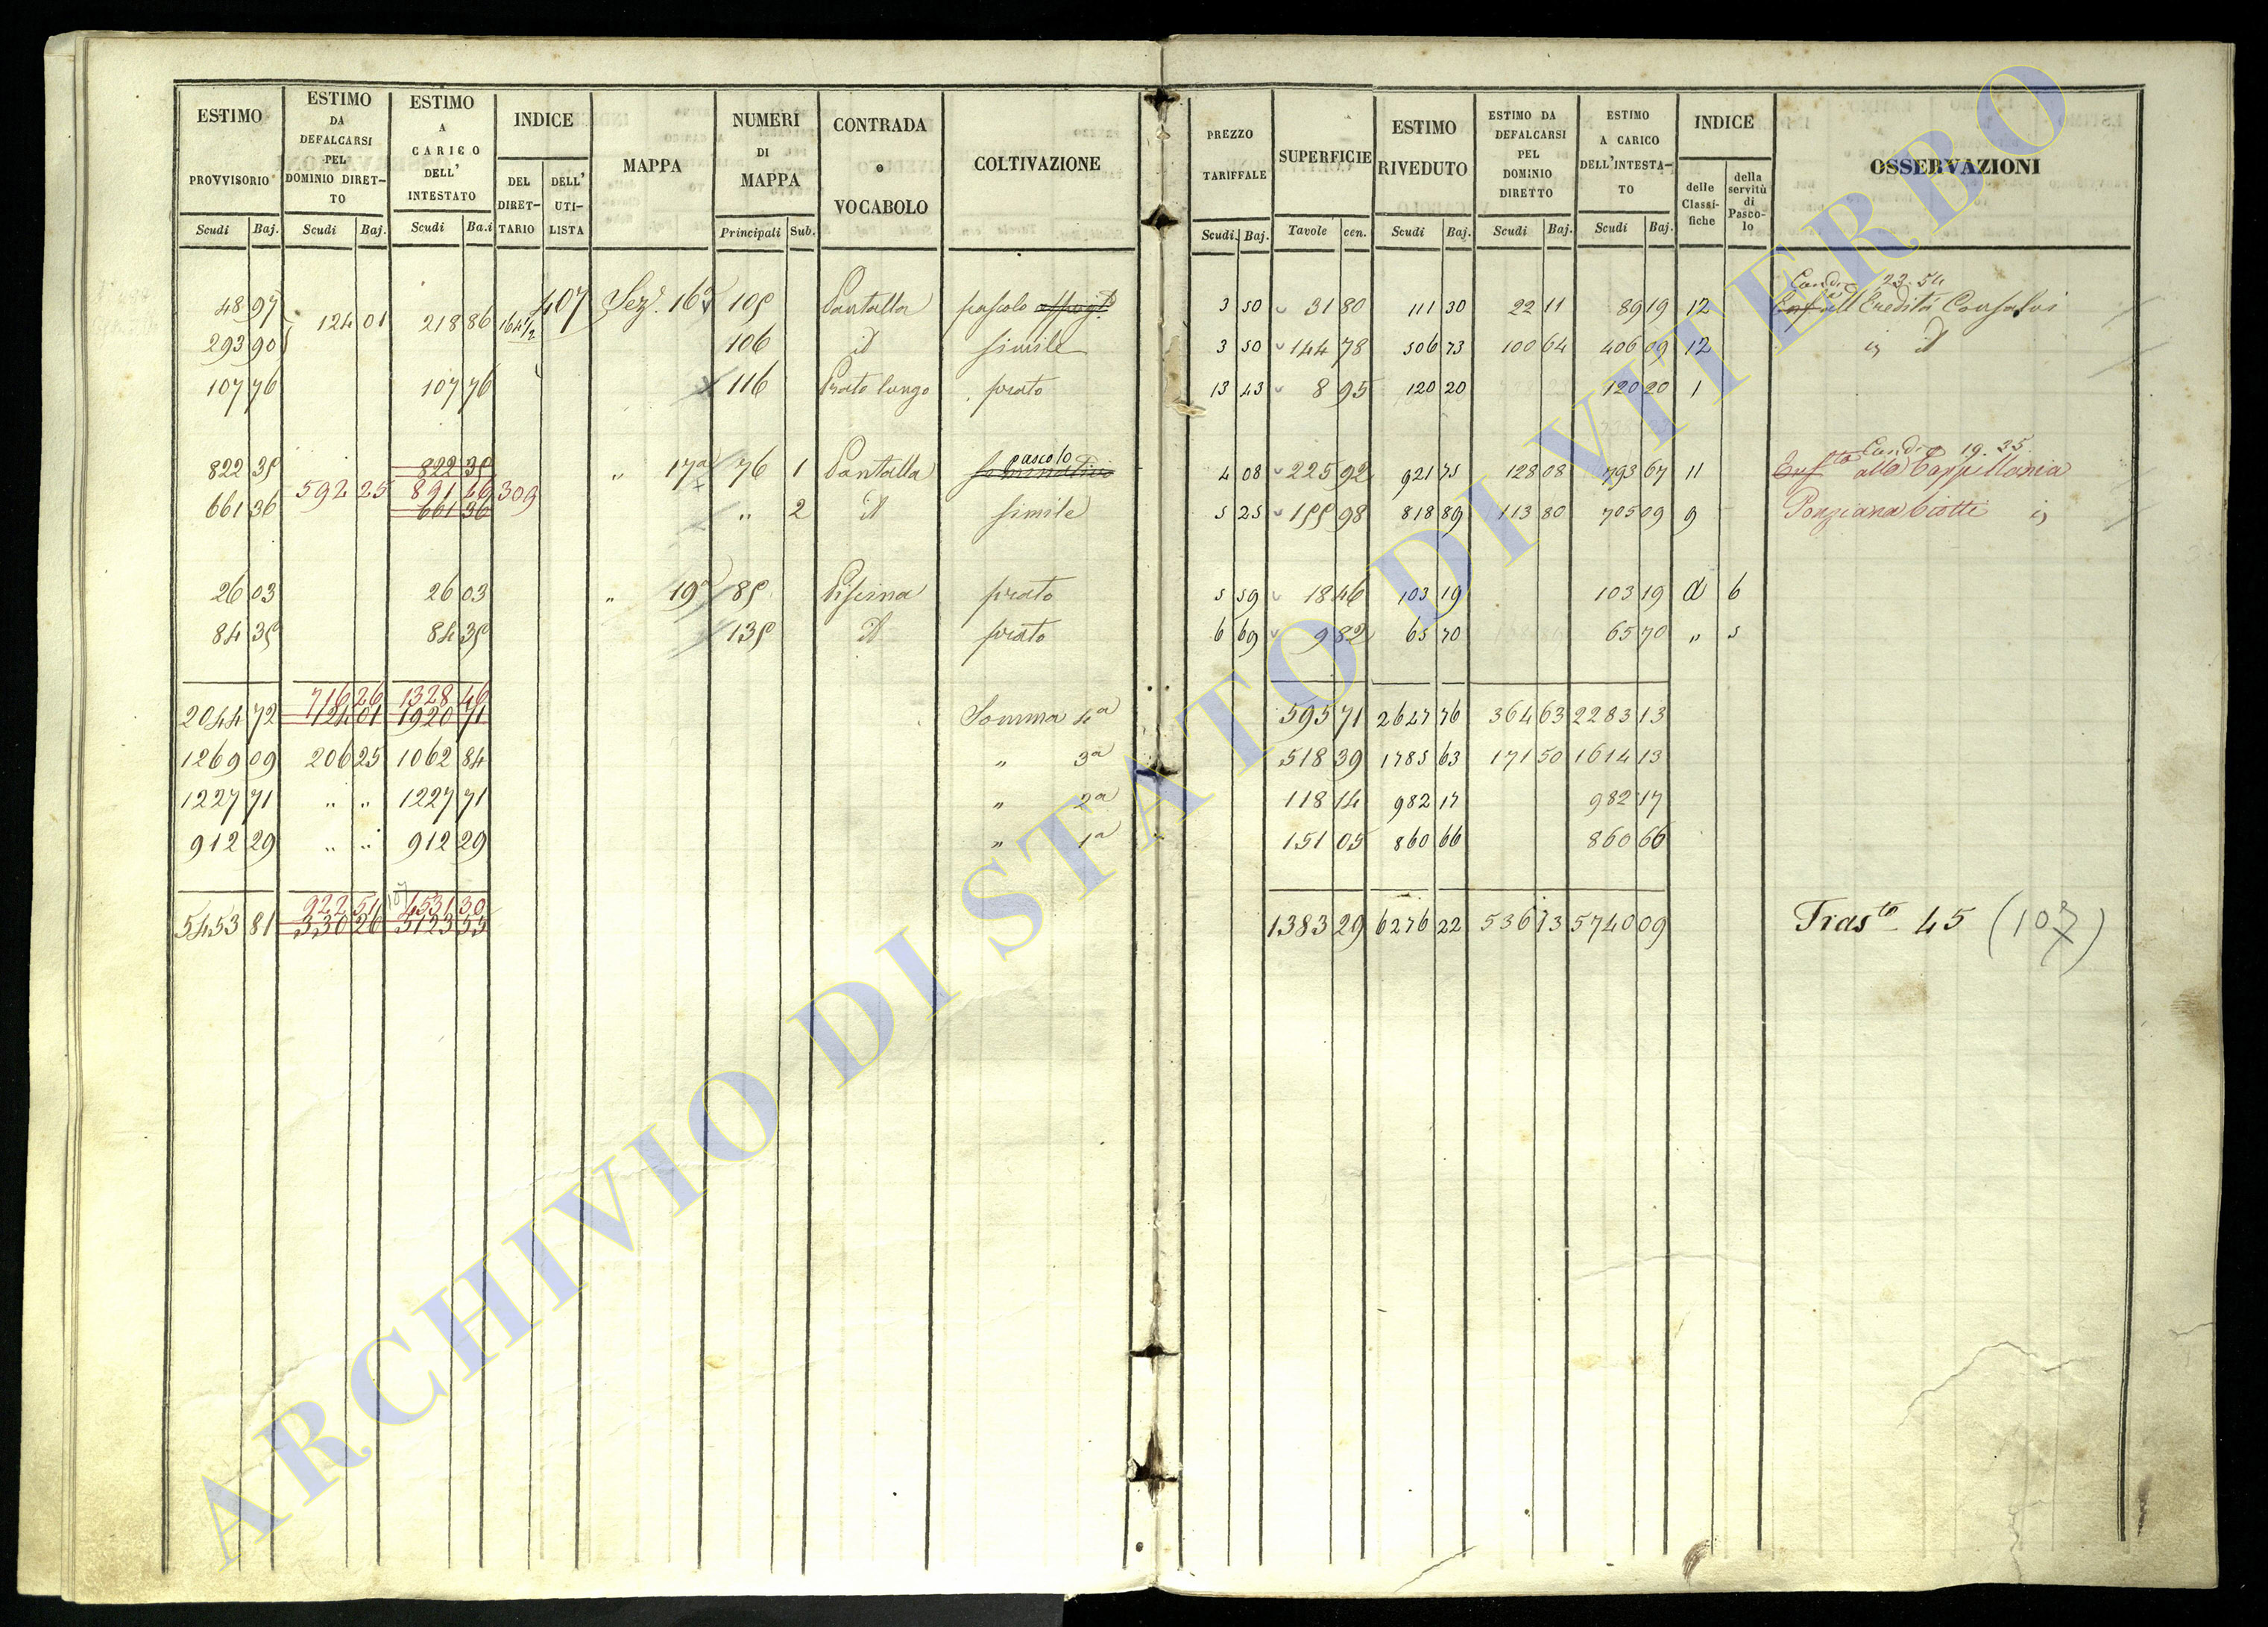 ESTIMO PROVVISORIO ESTIMO DA DEFALCARSI PEL DOMINIO DIRETTO ESTIMO A CARICO DELL' INTESTATO INDICE DEL DIRETTARIO DELL' UTILISTA MAPPA NUMERI DI MAPPA CONTRADA o VOCABOLO COLTIVAZIONE PREZZO TARIFFALE SUPERFICIE ESTIMO RIVEDUTO ESTIMO DA DEFALCARSI PEL DOMINIO DIRETTO ESTIMO A CARICO DELL'INTESTATO INDICE delle Classifiche della servitù di Pascolo OSSERVAZIONI
Scudi Baj. Scudi Baj. Scudi Ba.i Principali Sub. Scudi. Baj. Tavole cen. Scudi Baj. Scudi Baj. Scudi Baj.
Cand. 23.54
48 97 124 01 218 86 164 1/2 407 Sez. 16a 105 Pantalla pascolo 3 50 31 80 111 30 22 11 89 19 12 all Eredità Consalvi
293 90 106 id simile 3 50 144 78 506 73 100 64 406 09 12 id
107 76 107 76 116 Prato lungo prato 13 43 8 95 120 20 120 20 1
Cand. 19.35
822 35 822 35 " 17a 76 1 Pantalla pascolo 4 08 225 92 921 75 128 08 793 67 11 Enf alla Cappellania
592 25 891 46 309
661 36 661 36 " 2 id simile 5 25 155 98 818 89 113 80 705 09 9 Ponziana Ciotti
26 03 26 03 " 19a 85 Piscina prato 5 59 18 46 103 19 103 19 a 6
84 35 84 35 135 id prato 6 69 9 82 65 70 65 70 " 5
716 26 1328 46
2044 72 124 01 1920 71 Somma 4a 595 71 2647 76 364 63 2283 13
1269 09 206 25 1062 84 " 3a 518 39 1785 63 171 50 1614 13
1227 71 " " 1227 71 " 2a 118 14 982 17 982 17
912 29 " " 912 29 " 1a 151 05 860 66 860 66
922 51 4531 30
5453 81 330 26 5123 55 1383 29 6276 22 536 13 5740 09 Trasto 45 (107)
ARCHIVIO DI STATO DI VITERBO